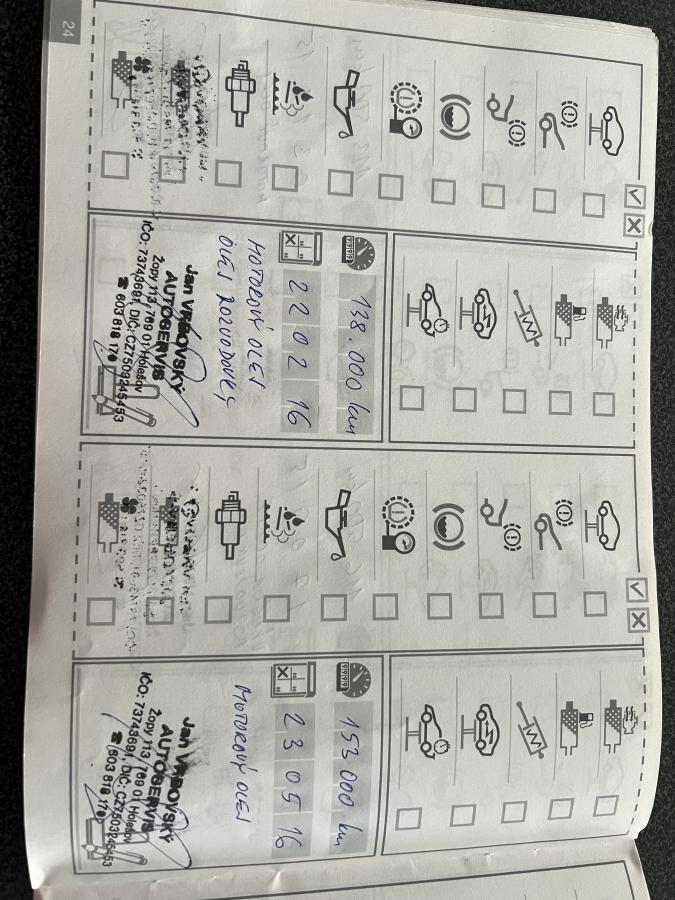 24
138.000 km
22 02 16
MOTOROVÝ OLEJ
OLEJ ROZVODOVEJ
Jan VRBOVSKÝ
AUTOSERVIS
Žopy 113, 769 01 Holešov
IČO: 73743691, DIČ: CZ7503245453
☎ 603 818 178
153 000 km
23 05 16
MOTOROVÝ OLEJ
Jan VRBOVSKÝ
AUTOSERVIS
Žopy 113, 769 01 Holešov
IČO: 73743691, DIČ: CZ7503245453
☎ 603 818 178